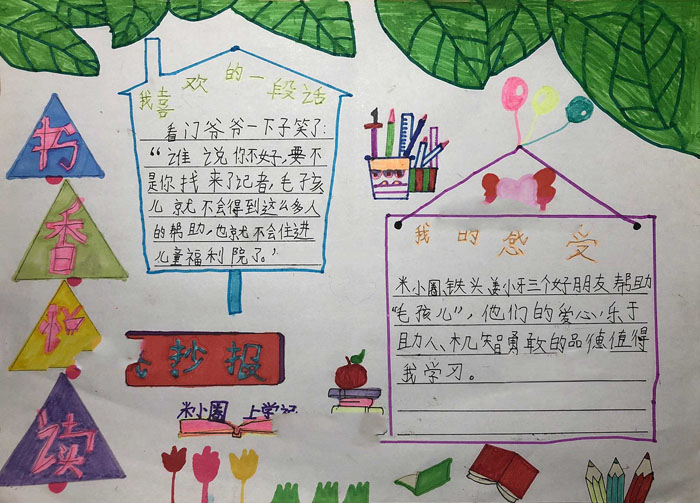 书
香
我喜欢的一段话
看门爷爷一下子笑了:
“谁说你不好,要不
是你找来了记者,毛孩
儿就不会得到这么多人
的帮助,也就不会住进
儿童福利院了。”
我的感受
米小圈铁头姜小牙三个好朋友帮助
“毛孩儿”,他们的爱心、乐于
助人、机智勇敢的品德值得
我学习。
抄报
米小圈 上学记
读